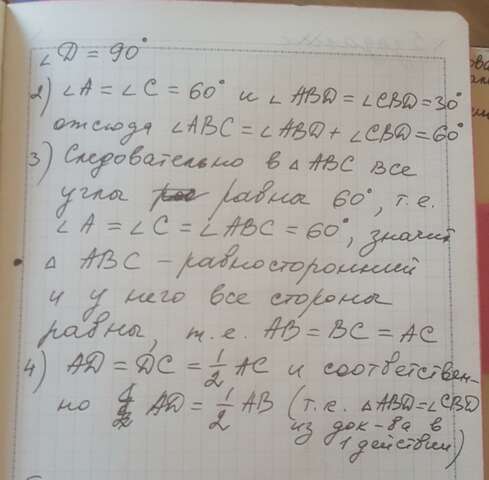 ∠D = 90°
2) ∠A = ∠C = 60° и ∠ABD = ∠CBD = 30°
отсюда ∠ABC = ∠ABD + ∠CBD = 60°
3) Следовательно в △ABC все
углы равны 60°, т.е.
∠A = ∠C = ∠ABC = 60°, значит
△ ABC – равносторонний
и у него все стороны
равны, т.е. AB = BC = AC
4) AD = DC = 1/2 AC и соответствен-
но AD = 1/2 AB (т.е. △ABD = ∠CBD
из док-ва в
1 действии)